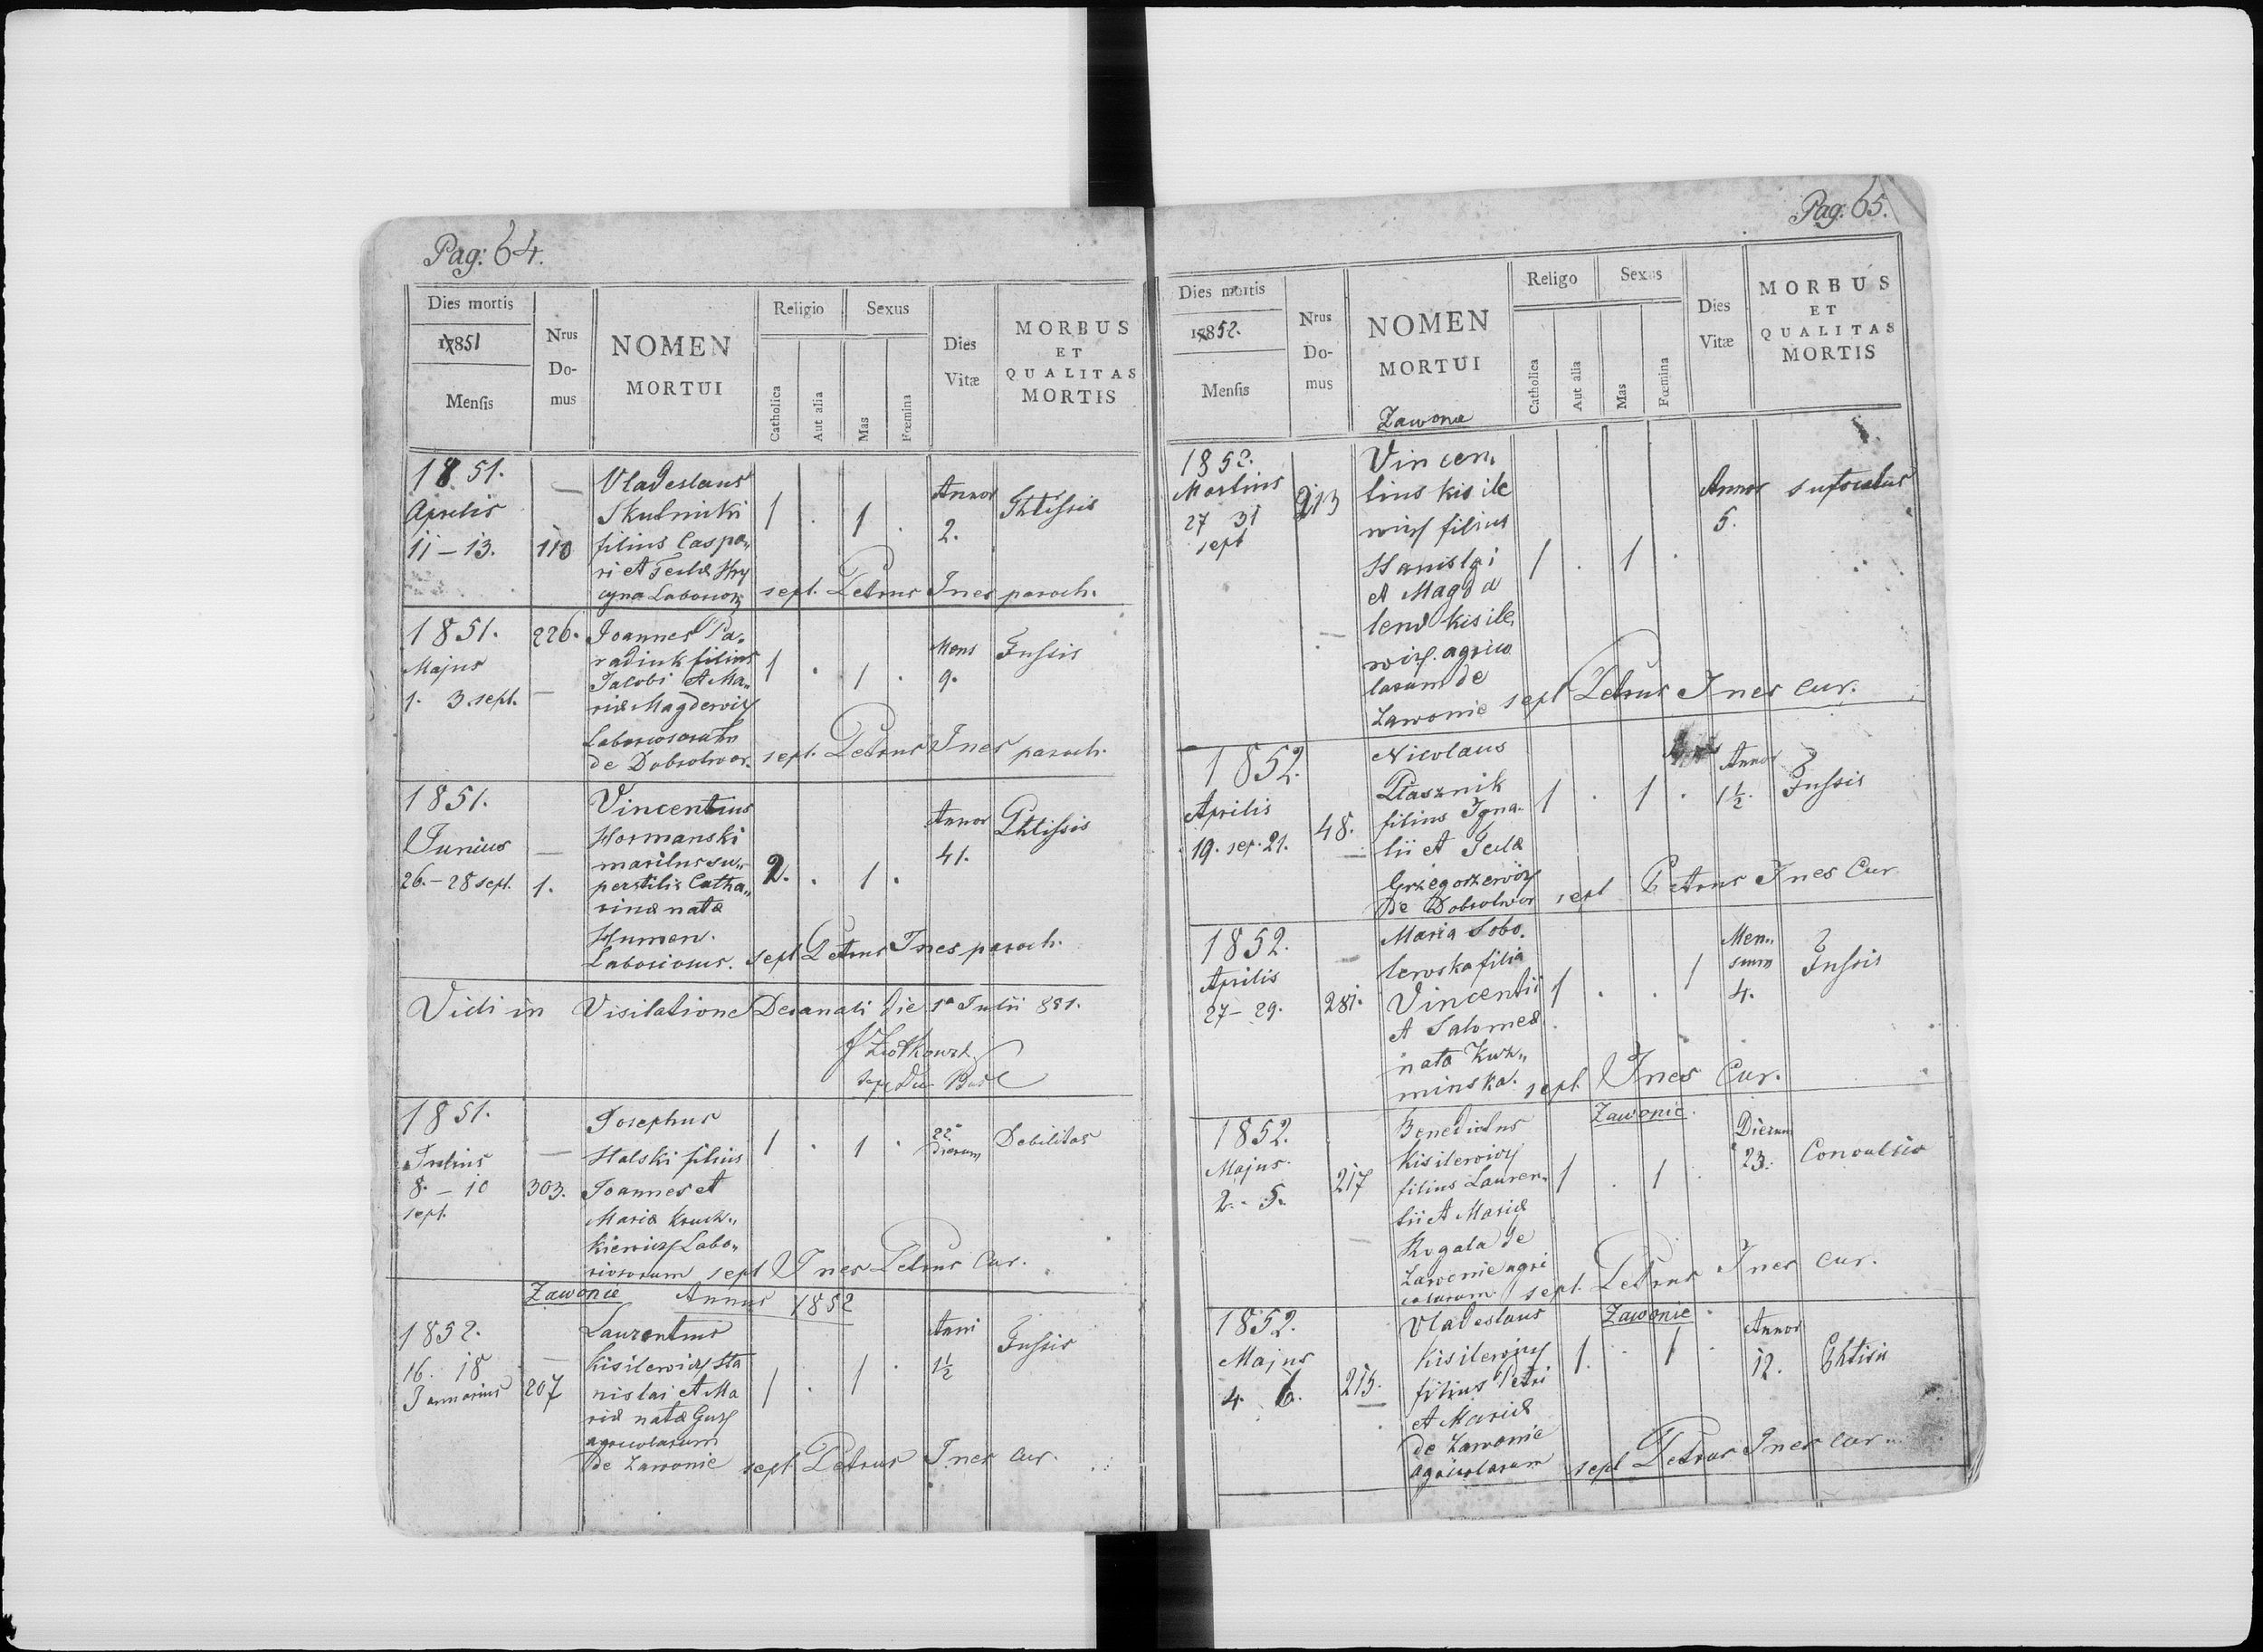 Pag: 64.
Dies mortis
17851
Mensis
Nrus
Do-
mus
NOMEN
MORTUI
Religio
Catholica
Aut alia
Sexus
Mas
Fœmina
Dies
Vitæ
MORBUS
ET
QUALITAS
MORTIS
1851.
Aprilis
11 – 13.
110
Vladeslaus
Skulniki
filius Caspa„
ri et Teclæ
1 . 1 .
Annor
2.
Phtissis
sept. Petrus Ines paroch.
1851.
Majus
1. 3. sept.
226.
Joannes Pa„
radiuk filius
Jacobi et Ma„
riæ Magdewicz
de Dobrotwor.
1 . 1 .
Mens
9.
Tussis
sept. Petrus Ines paroch.
1851.
Junius
26. – 28 sept.
1.
Vincentius
Hormanski
maritus su„
perstitis Catha„
rinæ nata
Humen.
Laboriosus.
2. . 1 .
Annor
41.
Phtissis
sept Petrus Ines paroch.
Vidi in Visitatione Decanali die 1a Julii 851.
1851.
Julius
8. – 10
sept.
303.
Josephus
Halski filius
Joannes et
Mariæ Kruch„
kiewicz Labo„
riosorum
1 . 1 .
22
dierum
Debilitas
sept Ines Petrus Cur.
Zawonie Annus 1852
1852.
16. 18
Januarius
207
Laurentius
Kisilewicz Sta
nislai et Ma
riæ nata Guz
agricolarum
de Zawonie
1 . 1 .
Anni
1½
Tussis
sept Petrus Ines Cur.
Pag: 65.
Dies mortis
17852.
Mensis
Nrus
Do-
mus
NOMEN
MORTUI
Zawonie
Religo
Catholica
Aut alia
Sexus
Mas
Fœmina
Dies
Vitæ
MORBUS
ET
QUALITAS
MORTIS
1852.
Martius
27 31
sept
213
Vincen„
tius Kisile
wicz filius
Stanislai
et Magda
lenæ Kisile„
wicz. agrico
larum de
Zawonie
1 . 1 .
Annor
5.
sufocatus
sept Petrus Ines Cur.
1852.
Aprilis
19. sep. 21.
48.
Nicolaus
Ptasznik
filius Igna„
tii et Teclæ
Grzegorzewicz
de Dobrotwor
1 . 1 .
Annor
1½.
Tussis
sept Petrus Ines Cur
1852.
Aprilis
27 – 29.
281.
Maria Sobo„
lewska filia
Vincentii
et Salomeæ
nata Kuz„
minska.
1 . . 1
Men„
sium
4.
Tussis
sept. Ines Cur.
1852.
Majus.
2. - 5.
217
Benedictus
Kisilewicz
filius Lauren„
tii et Mariæ
Rogala de
Zawonie agri
colarum.
Zawonie.
1 . 1 .
Dierum
23.
Convulsio
sept. Petrus Ines Cur.
1852.
Majus
4. 6.
215.
Vladeslaus
Kisilewicz
filius Petri
et Mariæ
de Zawonie
agricolarum
Zawonie.
1. . 1 .
Annor
12.
Phtisis
sept Petrus Ines Cur.